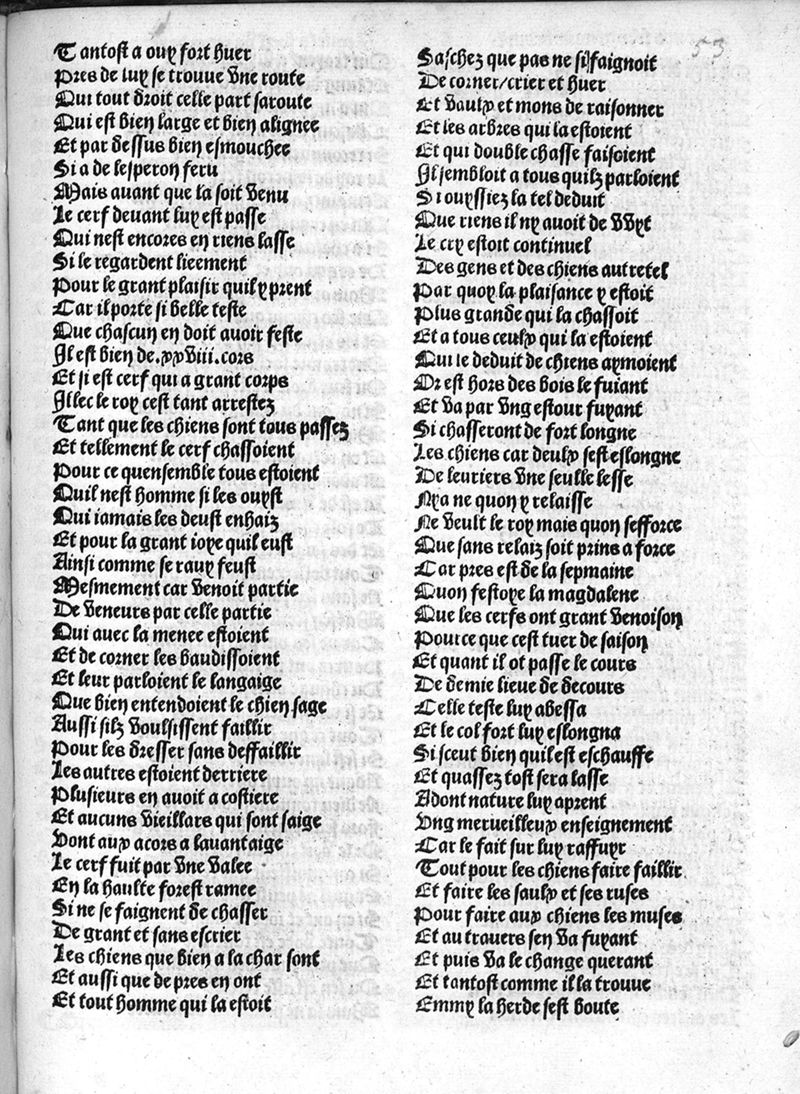 Tantost a ouy fort huer
Pres de luy se trouue vne route
Qui tout droit celle part saroute
Qui est bien large et bien alignee
Et par dessus bien esmouchee
Si a de lesperon feru
Mais auant que la soit venu
Le cerf deuant luy est passe
Qui nest encores en riens lasse
Si le regardent lieement
Pour le grant plaisir quil y prent
Car il porte si belle teste
Que chascun en doit auoir feste
Il est bien de.xxviii.cors
Et si est cerf qui a grant corps
Illec le roy cest tant arrestez
Tant que les chiens sont tous passez
Et tellement le cerf chassoient
Pour ce quensemble tous estoient
Quil nest homme si les ouyst
Qui iamais les deust enhaiz
Et pour la grant ioye quil eust
Ainsi comme se rauy feust
Mesmement car venoit partie
De veneurs par celle partie
Qui auec la menee estoient
Et de corner les baudissoient
Et leur parloient le langaige
Que bien entendoient le chien sage
Aussi silz voulsissent faillir
Pour les dresser sans deffaillir
Les autres estoient derriere
Plusieurs en auoit a costiere
Et aucuns vieillars qui sont saige
Vont aux acors a lauantaige
Le cerf fuit par vne valee
En la haulte forest ramee
Si ne se faignent de chasser
De grant et sans escrier
Les chiens que bien a la char sont
Et aussi que de pres en ont
Et tout homme qui la estoit
53
Saschez que pas ne si faignoit
De corner/crier et huer
Et vaulx et mons de raisonner
Et les arbres qui la estoient
Et qui double chasse faisoient
Il sembloit a tous quilz parloient
Si ouyssiez la tel deduit
Que riens il ny auoit de vvyt
Le cry estoit continuel
Des gens et des chiens autretel
Par quoy la plaisance y estoit
Plus grande qui la chassoit
Et a tous ceulx qui la estoient
Qui le deduit de chiens aymoient
Or est hors des bois le fuiant
Et va par vng estour fuyant
Si chasseront de fort longne
Les chiens car deulx sest eslongne
De leuriers vne seulle lesse
Nya ne quon y relaisse
Ne veult le roy mais quon sefforce
Que sans relaiz soit prins a force
Car pres est de la sepmaine
Quon festoye la magdalene
Que les cerfs ont grant venoison
Pource que cest tuer de saison
Et quant il ot passe le cours
De demie lieue de decours
Celle teste luy abessa
Et le col fort luy eslongna
Si sceut bien quil est eschauffe
Et quassez tost sera lasse
Adont nature luy aprent
Vng merueilleux enseignement
Car le fait sur luy raffuyr
Tout pour les chiens faire faillir
Et faire les saulx et ses ruses
Pour faire aux chiens les muses
Et au trauers sen va fuyant
Et puis va le change querant
Et tantost comme il la trouue
Emmy la herde sest boute